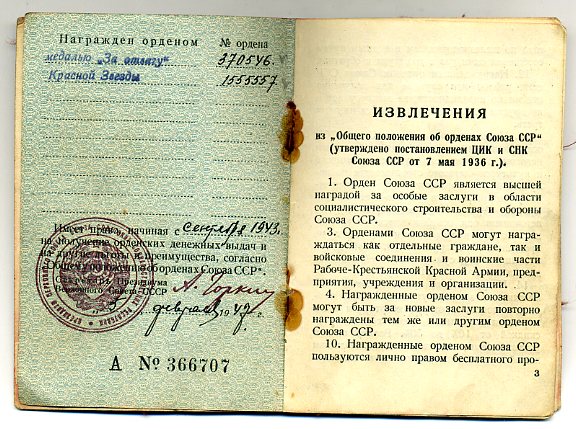 Награжден орденом № ордена
медалью „За отвагу" 370546.
Красной Звезды 1555557
Имеет право начиная с сентября 1943.
на получение орденских денежных выдач и
другие льготы и преимущества, согласно
„Общему положению об орденах Союза ССР".
Секретарь Президиума
Верховного Совета СССР А. Горкин
февраля 1947 г.
А № 366707
ИЗВЛЕЧЕНИЯ
из „Общего положения об орденах Союза ССР"
(утверждено постановлением ЦИК и СНК
Союза ССР от 7 мая 1936 г.).
1. Орден Союза ССР является высшей
наградой за особые заслуги в области
социалистического строительства и обороны
Союза ССР.
3. Орденами Союза ССР могут награ-
ждаться как отдельные граждане, так и
войсковые соединения и воинские части
Рабоче-Крестьянской Красной Армии, пред-
приятия, учреждения и организации.
4. Награжденные орденом Союза ССР
могут быть за новые заслуги повторно
награждены тем же или другим орденом
Союза ССР.
10. Награжденные орденом Союза ССР
пользуются лично правом бесплатного про-
3